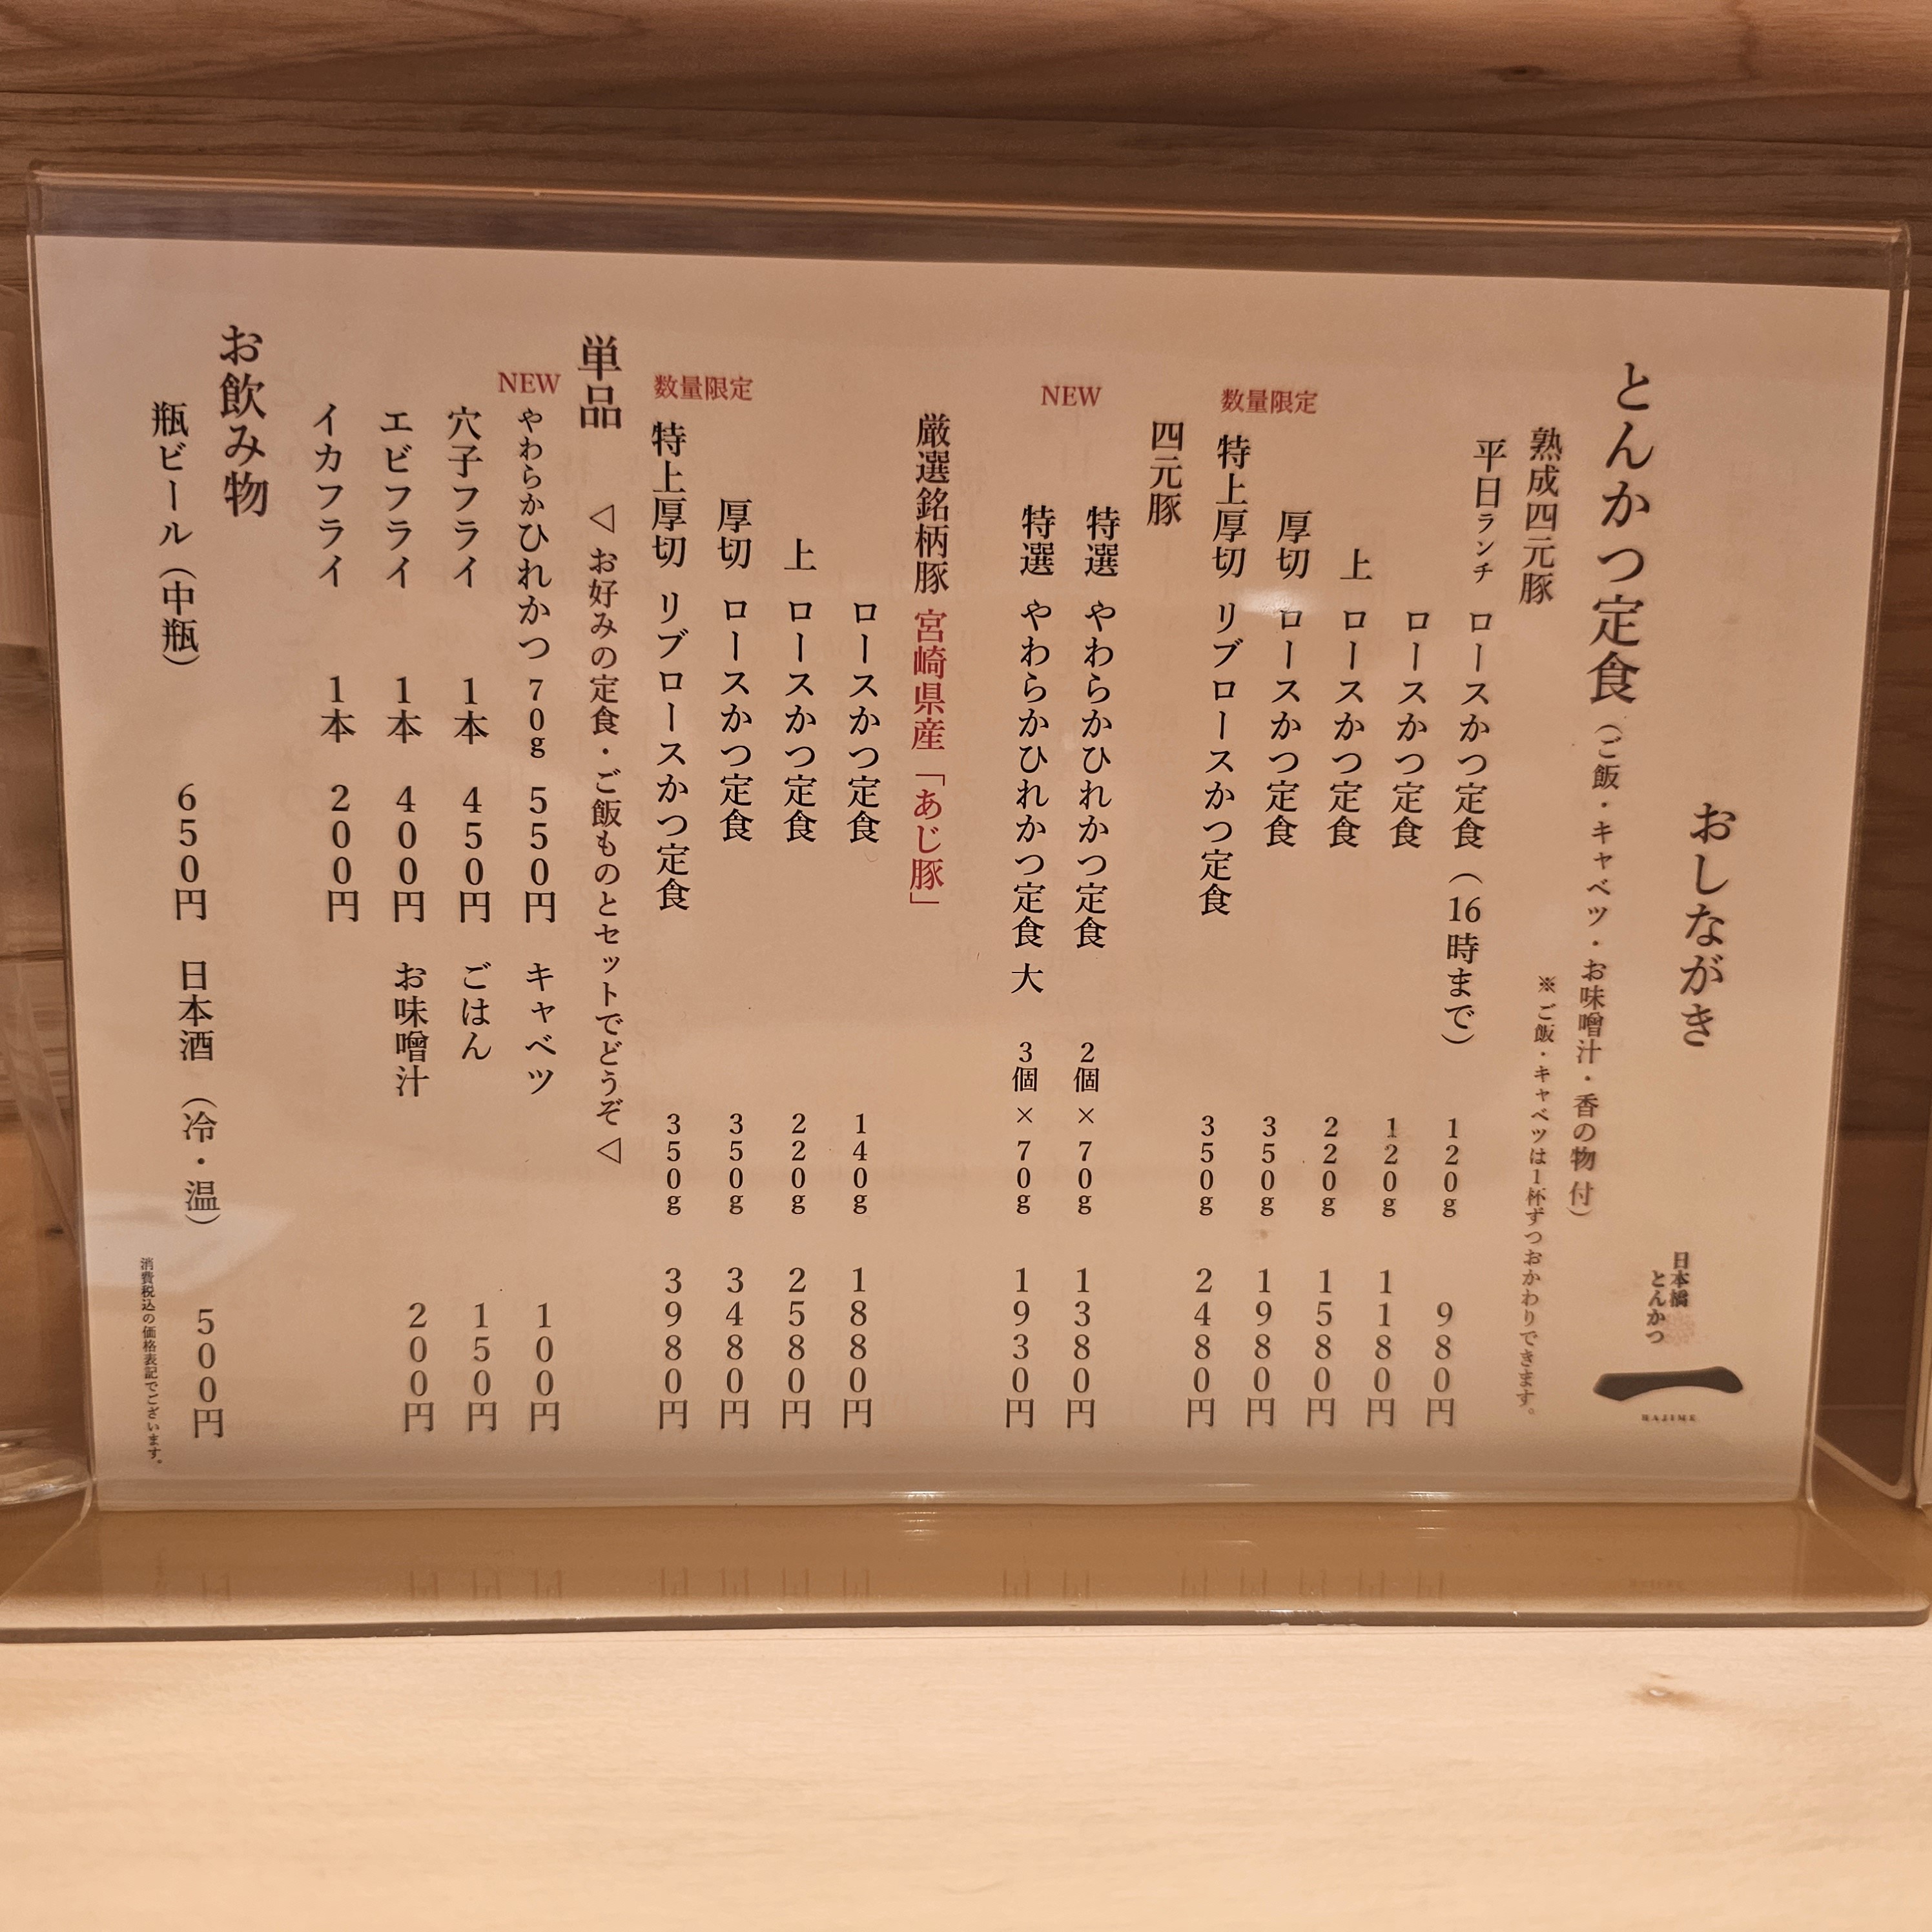 おしながき
日本橋
とんかつ
一
HAJIME
とんかつ定食（ご飯・キャベツ・お味噌汁・香の物 付）
※ご飯・キャベツは1杯ずつおかわりできます。
熟成四元豚
平日ランチ ロースかつ定食（16時まで） 120g 980円
ロースかつ定食 120g 1180円
上 ロースかつ定食 220g 1580円
厚切 ロースかつ定食 350g 1980円
数量限定
特上厚切 リブロースかつ定食 350g 2480円
四元豚
特選 やわらかひれかつ定食 2個×70g 1380円
NEW
特選 やわらかひれかつ定食 大 3個×70g 1930円
厳選銘柄豚 宮崎県産「あじ豚」
ロースかつ定食 140g 1880円
上 ロースかつ定食 220g 2580円
厚切 ロースかつ定食 350g 3480円
数量限定
特上厚切 リブロースかつ定食 350g 3980円
単品 ◁ お好みの定食・ご飯ものとセットでどうぞ ◁
NEW
やわらかひれかつ 70g 550円 キャベツ 100円
穴子フライ 1本 450円 ごはん 150円
エビフライ 1本 400円 お味噌汁 200円
イカフライ 1本 200円
お飲み物
瓶ビール（中瓶） 650円 日本酒（冷・温） 500円
消費税込の価格表記でございます。